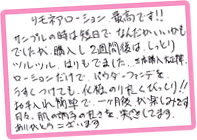 リモネアローション 最高です!!
サンプルの時は数日で なんだかいいかも
でしたが、購入し 2週間後は、しっとり
ツルツル。はりもでました。
ローションだけで、パウダーファンデを
うすくつけても、化粧のりもびっくり!!
お手入れ簡単で、一ヶ月後が楽しみです
日々、肌の調子の良さを、実感してます。
ありがとうございます